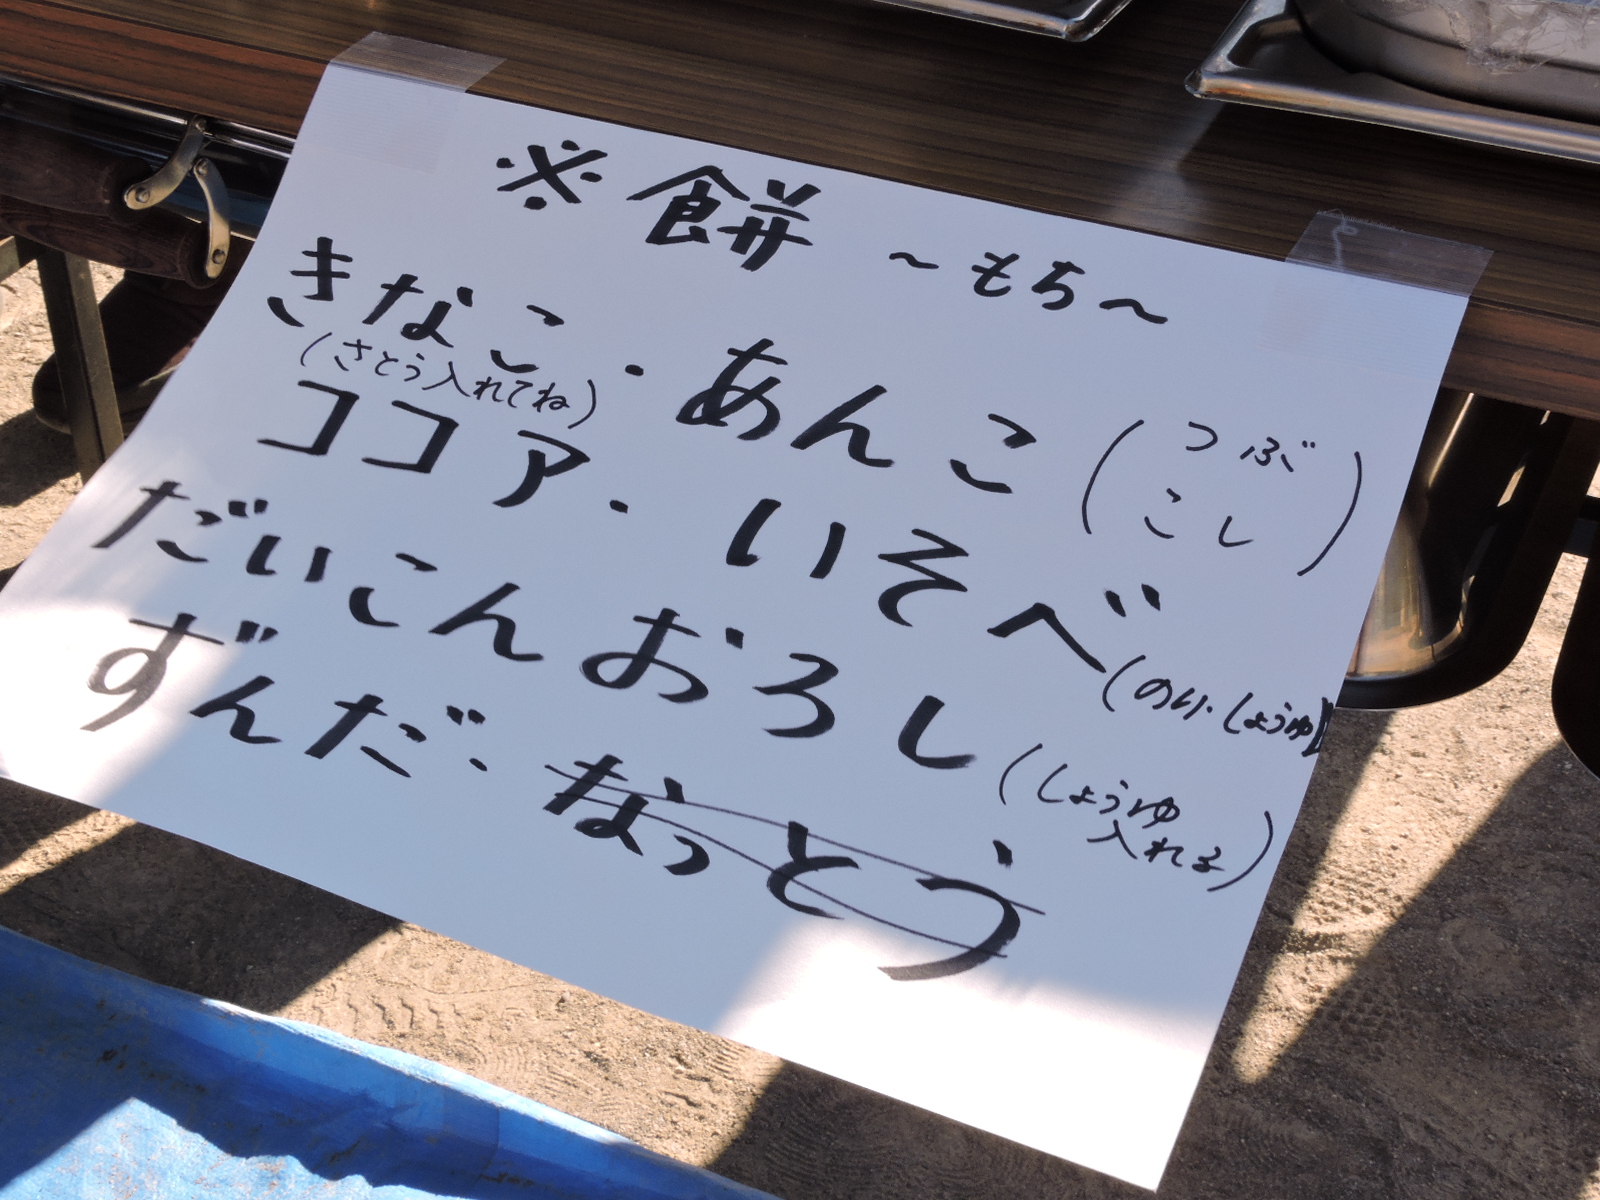 ※餅 ～もち～
きなこ・あんこ(つぶ こし)
(さとう入れてね)
ココア・いそべ(のり・しょうゆ)
だいこんおろし(しょうゆ入れる)
ずんだ・なっとう